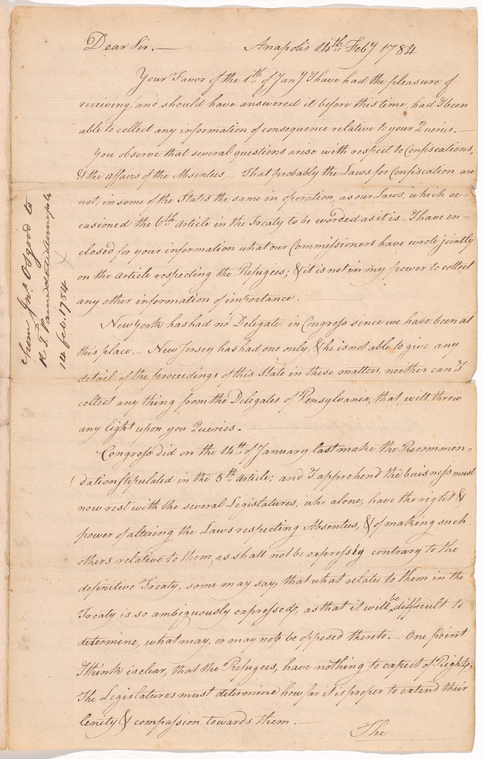 Dear Sir. — Anapolis 14th Feby 1784
Your Favor of the 1st of Jany I have had the pleasure of
receiving, and should have answered it before this time, had I been
able to collect any information of consequence relative to your Queries. —
You observe that several questions arise with respect to Confiscations,
& the affairs of the Absentees — That probably the Laws for Confiscation are
not, in some of the States the same in operation, as our Laws, which oc-
casioned the 6th Article in the Treaty to be worded as it is. I have en-
closed for your information what our Commissioners have wrote jointly
on the Article respecting the Refugees; & it is not in my power to collect
any other information of importance.
New York has had no Delegate in Congress since we have been at
this place — New Jersey has had one only, & he is not able to give any
detail of the proceedings of this State in these matters, neither can I
collect any thing from the Delegates of Pensylvania, that will throw
any light upon you Queries. —
Congress did on the 14th of January last make the Recommen-
dation stipulated in the 5th Article; and I apprehend the buisness must
now rest with the several Legislatures, who alone, have the right &
power of altering the Laws respecting Absentees, & of making such
others relative to them, as shall not be expressly contrary to the
definitive Treaty, some may say that what relates to them in the
Treaty is so ambiguously expressed, as that it will be difficult to
determine, what may, or may not be opposed thereto. — One point
I think is clear, that the Refugees, have nothing to expect of Right,
The Legislatures must determine how far it is proper to extend their
lenity & compassion towards them. —
The
from Osgood to
14 feb. 1784